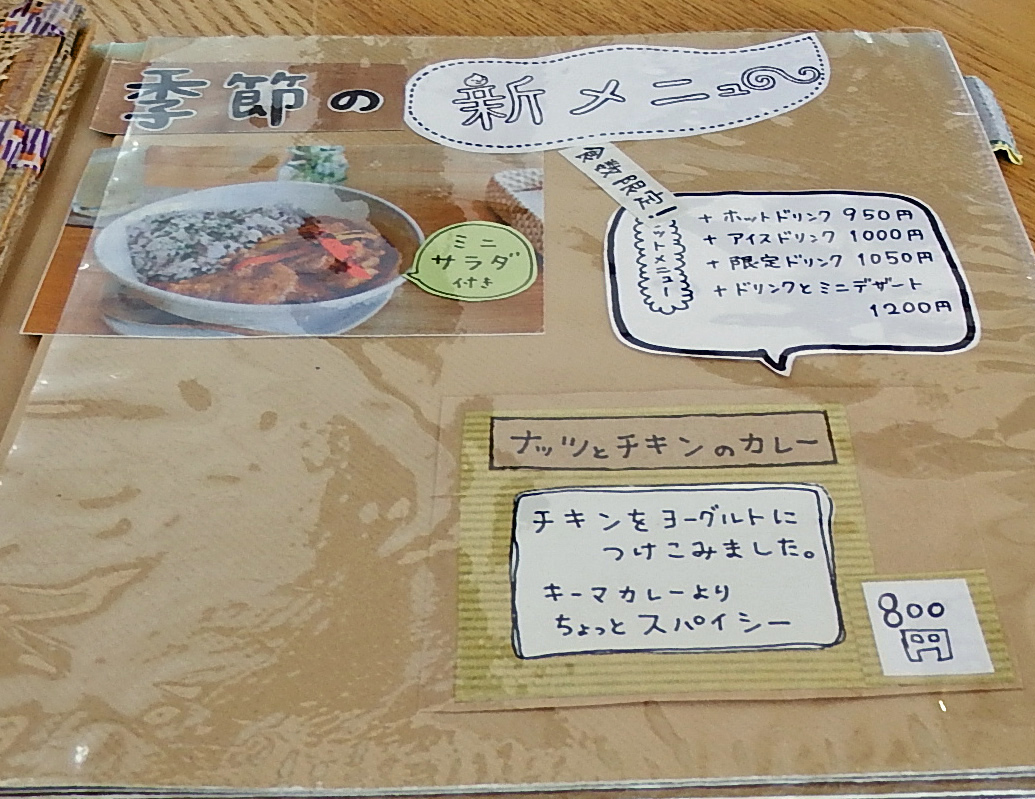 季節の新メニュー
食数限定!
セットメニュー
+ ホットドリンク 950円
+ アイスドリンク 1000円
+ 限定ドリンク 1050円
+ ドリンクとミニデザート
1200円
ミニ
サラダ
付き
ナッツとチキンのカレー
チキンをヨーグルトに
つけこみました。
キーマカレーより
ちょっとスパイシー
800
円